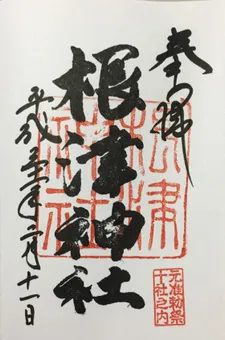 奉拝
元准勅祭
十社之内
根津神社
根津
神社
平成 年 月十一日